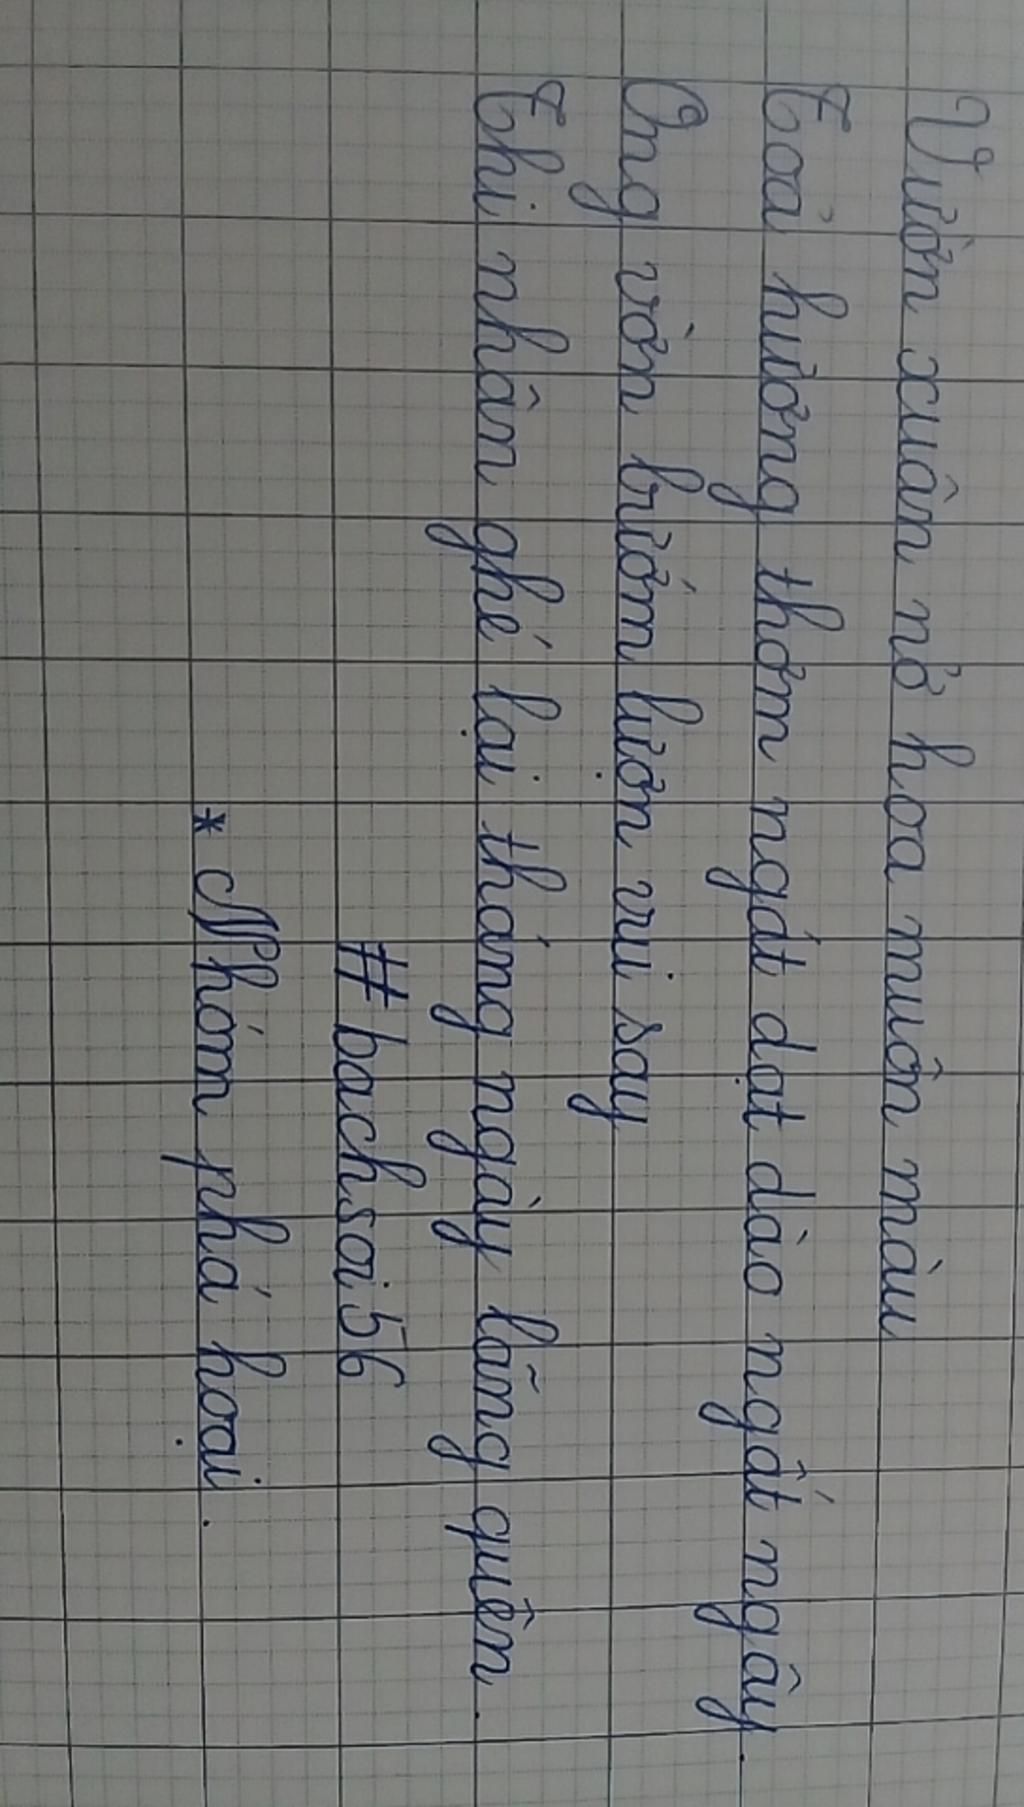 Vườn xuân nở hoa muôn màu
Toả hương thơm ngát dạt dào ngất ngây.
Ong vờn bướm lượn vui say
Thi nhân ghé lại tháng ngày lãng quên.
#bachsoi56
*Nhóm phá hoại.